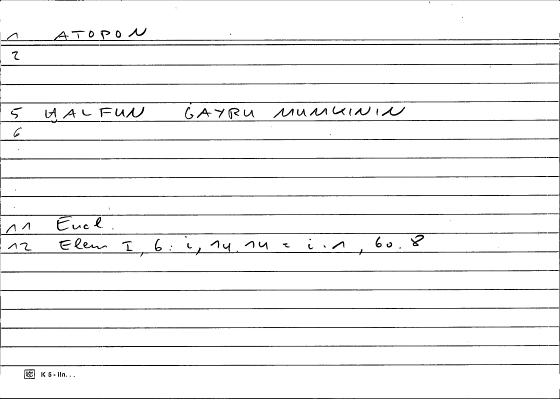 1 ATOPON
2
5 ḪALFUN ĠAYRU MUMKININ
6
11 Eucl.
12 Elem I, 6: i, 14.14 = i.1, 60.8
K 5 - lln...